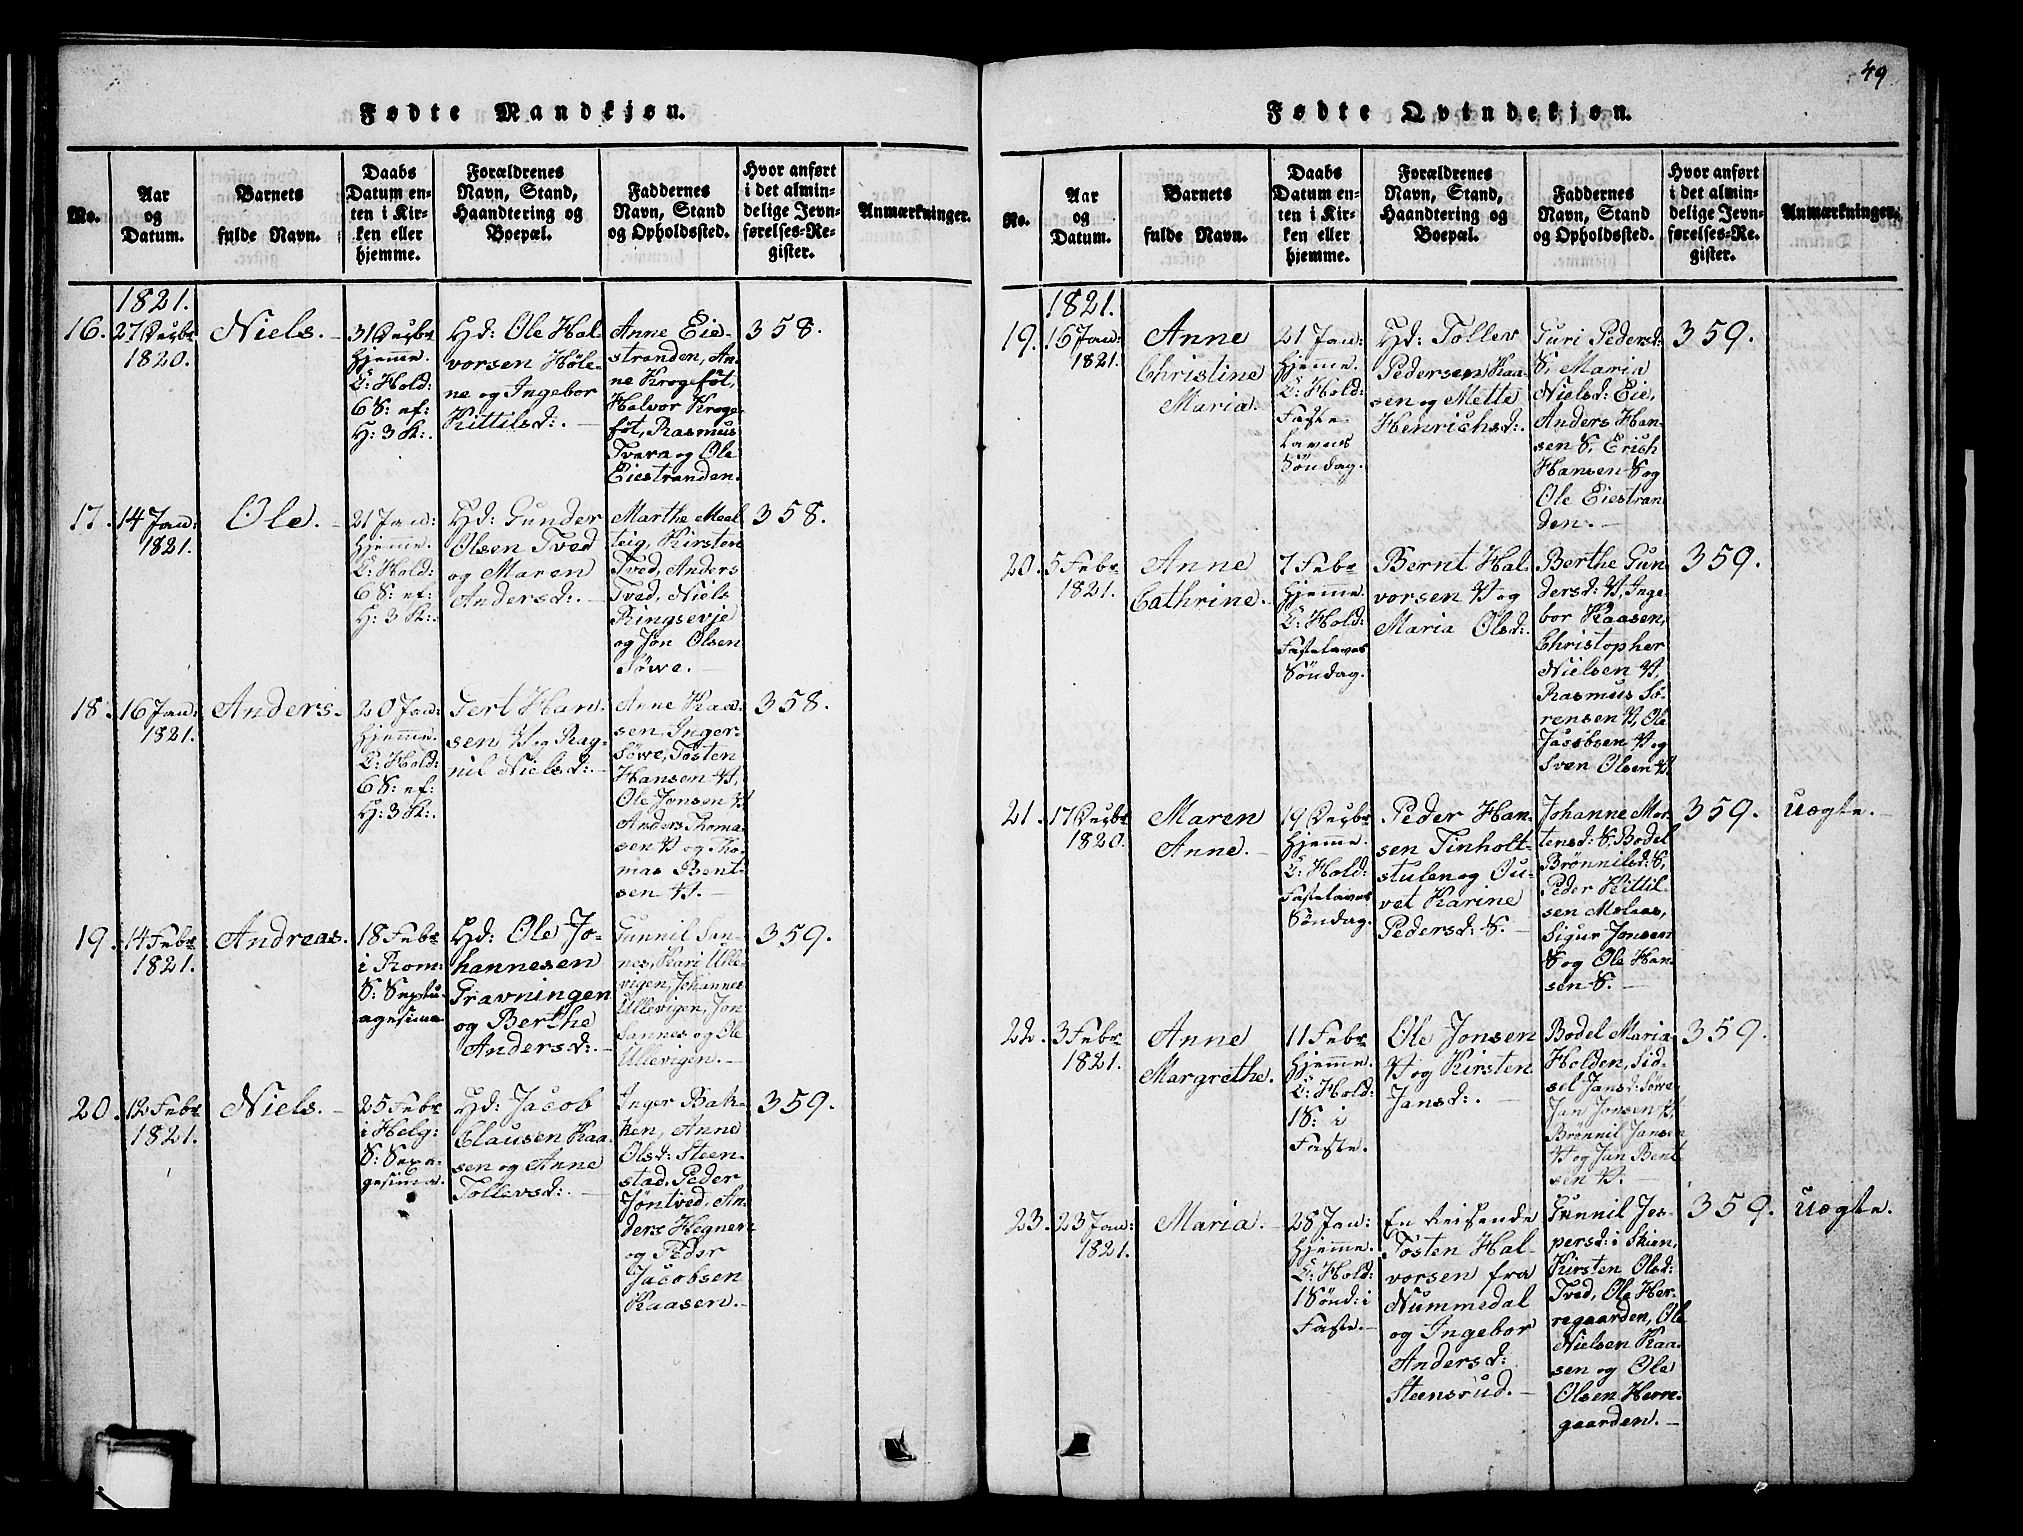 Fødte Mandkjøn.
No.
Aar
og
Datum.
Barnets
fulde Navn.
Daabs
Datum en-
ten i Kir-
ken eller
hjemme.
Forældrenes
Navn, Stand,
Haandtering og
Boepæl.
Faddernes
Navn, Stand
og Opholdssted.
Hvor anført
i det almin-
delige Jevn-
førelses-Re-
gister.
Anmærkninger.
1821.
16.
27 Decbr
1820.
Niels.
31 Decbr
hjemme.
I: Hold:
6 S: ef:
H: 3 K:.
Hd: Ole Hal
vorsen Höle-
ne og Ingebor
Kittilsd:.
Anne Eie-
stranden, An
ne Krogeföt,
Halvor Kroge-
föt, Rasmus
Tvera og Ole
Eiestranden.
358.
17.
14 Jan:
1821.
Ole.
21 Jan:
hjemme.
I: Hold:
6 S: ef:
H: 3 K:.
Hd: Gunder
Olsen Tved
og Maren
Andersd:.
Marthe Meel
teig, Kirsten
Tved, Anders
Tved, Niels
Ringsevje
og Jon Olsen
Söwe.
358.
18.
16 Jan:
1821.
Anders.
20 Jan:
hjemme.
I: Hold:
6 S: ef:
H: 3 K:.
Gert Han
sen V. og Rag-
nil Nielsd:.
Anne Kaa
sen, Inger
Söwe, Tosten
Hansen V,
Ole Jonsen V
Anders Thoma
sen V og Tho-
mas Bent-
sen V.
358.
19.
14 Febr
1821.
Andreas.
18 Febr
i Rom:
S: Septu-
agesima
Hd: Ole Jo-
hannesen
Gravningen
og Berthe
Andersd:.
Gunnil San-
nes, Kari Ulle-
vigen, Johannes
Ullevigen, Jon
Sannes og Ole
Ullevigen.
359.
20.
12 Febr
1821.
Niels.
25 Febr
i Helg:
S: Sexa-
gesima.
Hd: Jacob
Clausen Kaa-
sen og Anne
Tollevsd:.
Inger Bak-
ken, Anne
Olsd: Steen-
stad, Peder
Jöntved, An-
ders Hegner
og Peder
Jacobsen
Kaasen.
359.
49
Fødte Qvindekjøn.
No.
Aar
og
Datum.
Barnets
fulde Navn.
Daabs
Datum en-
ten i Kir-
ken eller
hjemme.
Forældrenes
Navn, Stand,
Haandtering og
Boepæl.
Faddernes
Navn, Stand
og Opholdssted.
Hvor anført
i det almin-
delige Jevn-
førelses-Re-
gister.
Anmærkninger.
1821.
19.
16 Jan:
1821.
Anne
Christine
Maria.
21 Jan:
hjemme.
I: Hold:
Faste-
lavens
Söndag.
Hd: Tollev
Pedersen Kaa-
sen og Mette
Henrichsd:.
Guri Pedersd:
S, Maria
Nielsd: Eie,
Anders Han-
sen S, Erich
Hansen S og
Ole Eiestran
den.
359.
20.
5 Febr
1821.
Anne
Cathrine.
7 Febr
hjemme.
I: Hold:
Fastelaves
Söndag.
Bernt Hal
vorsen V og
Maria Olsd:.
Berthe Gun
dersd: V, Inge-
bor Kaasen,
Christopher
Nielsen V,
Rasmus Sö-
rensen V, Ole
Jacobsen V og
Sven Olsen V.
359.
21.
17 Decbr
1820.
Maren
Anne.
19 Decbr
hjemme.
I: Hold:
Fastelaves
Söndag.
Peder Han-
sen Tinholt-
stulen og Ou-
vet Karine
Pedersd: S.
Johanne Mor
tensd: S, Bodel
Brönnilsd: S,
Peder Kittil-
sen Melaas,
Sigur Jonsen
S og Ole Han
sen S.
359.
uægte.
22.
3 Febr
1821.
Anne
Margrethe.
11 Febr
hjemme.
I: Hold:
1 S: i
Faste.
Ole Jonsen
V og Kirsten
Jansd:.
Bodel Maria
Holden, Sid-
sel Jansd: Söwe,
Jan Jonsen V
Brönnil Jansen
V og Jan Bent
sen V.
359.
23.
23 Jan:
1821.
Maria.
28 Jan:
hjemme.
I: Hold:
1 Sönd: i
Faste.
En Reisende
Tosten Hal-
vorsen fra
Nummedal
og Ingebor
Andersd:
Steensrud.
Gunnil Jes-
persd: i Skien,
Kirsten Olsd:
Tved, Ole Her-
regaarden, Ole
Nielsen Kaa-
sen og Ole
Olsen Herre-
gaarden.
359.
uægte.